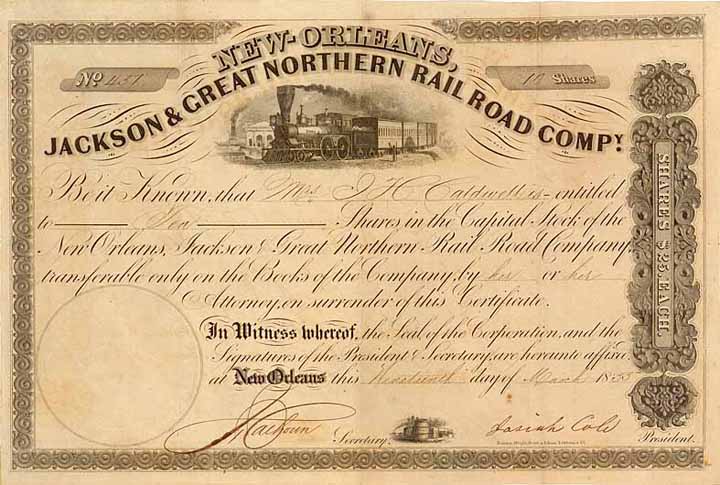 NEW-ORLEANS,
No 457
10 Shares
JACKSON & GREAT NORTHERN RAIL ROAD COMPY.
Be it Known, that Mrs J H Caldwell is entitled
to Ten Shares in the Capital Stock of the
New Orleans, Jackson & Great Northern Rail Road Company,
transferable only on the Books of the Company, by her or her
Attorney, on surrender of this Certificate.
In Witness whereof, the Seal of the Corporation, and the
Signatures of the President & Secretary, are hereunto affixed
at New Orleans this day of March 1855
J Calhoun Secretary.
Josiah Cole President.
SHARES $25 EACH.